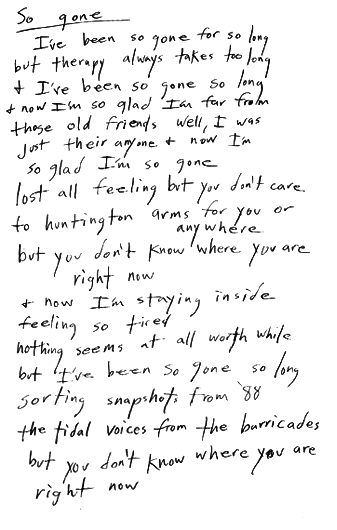 So gone
I've been so gone for so long
but therapy always takes too long
+ I've been so gone so long
+ now I'm so glad I'm far from
those old friends well, I was
just their anyone + now I'm
so glad I'm so gone
lost all feeling but you don't care
to huntington arms for you or
anywhere
but you don't know where you are
right now
+ now I'm staying inside
feeling so tired
nothing seems at all worth while
but I've been so gone so long
sorting snapshots from '88
the tidal voices from the barricades
but you don't know where you are
right now